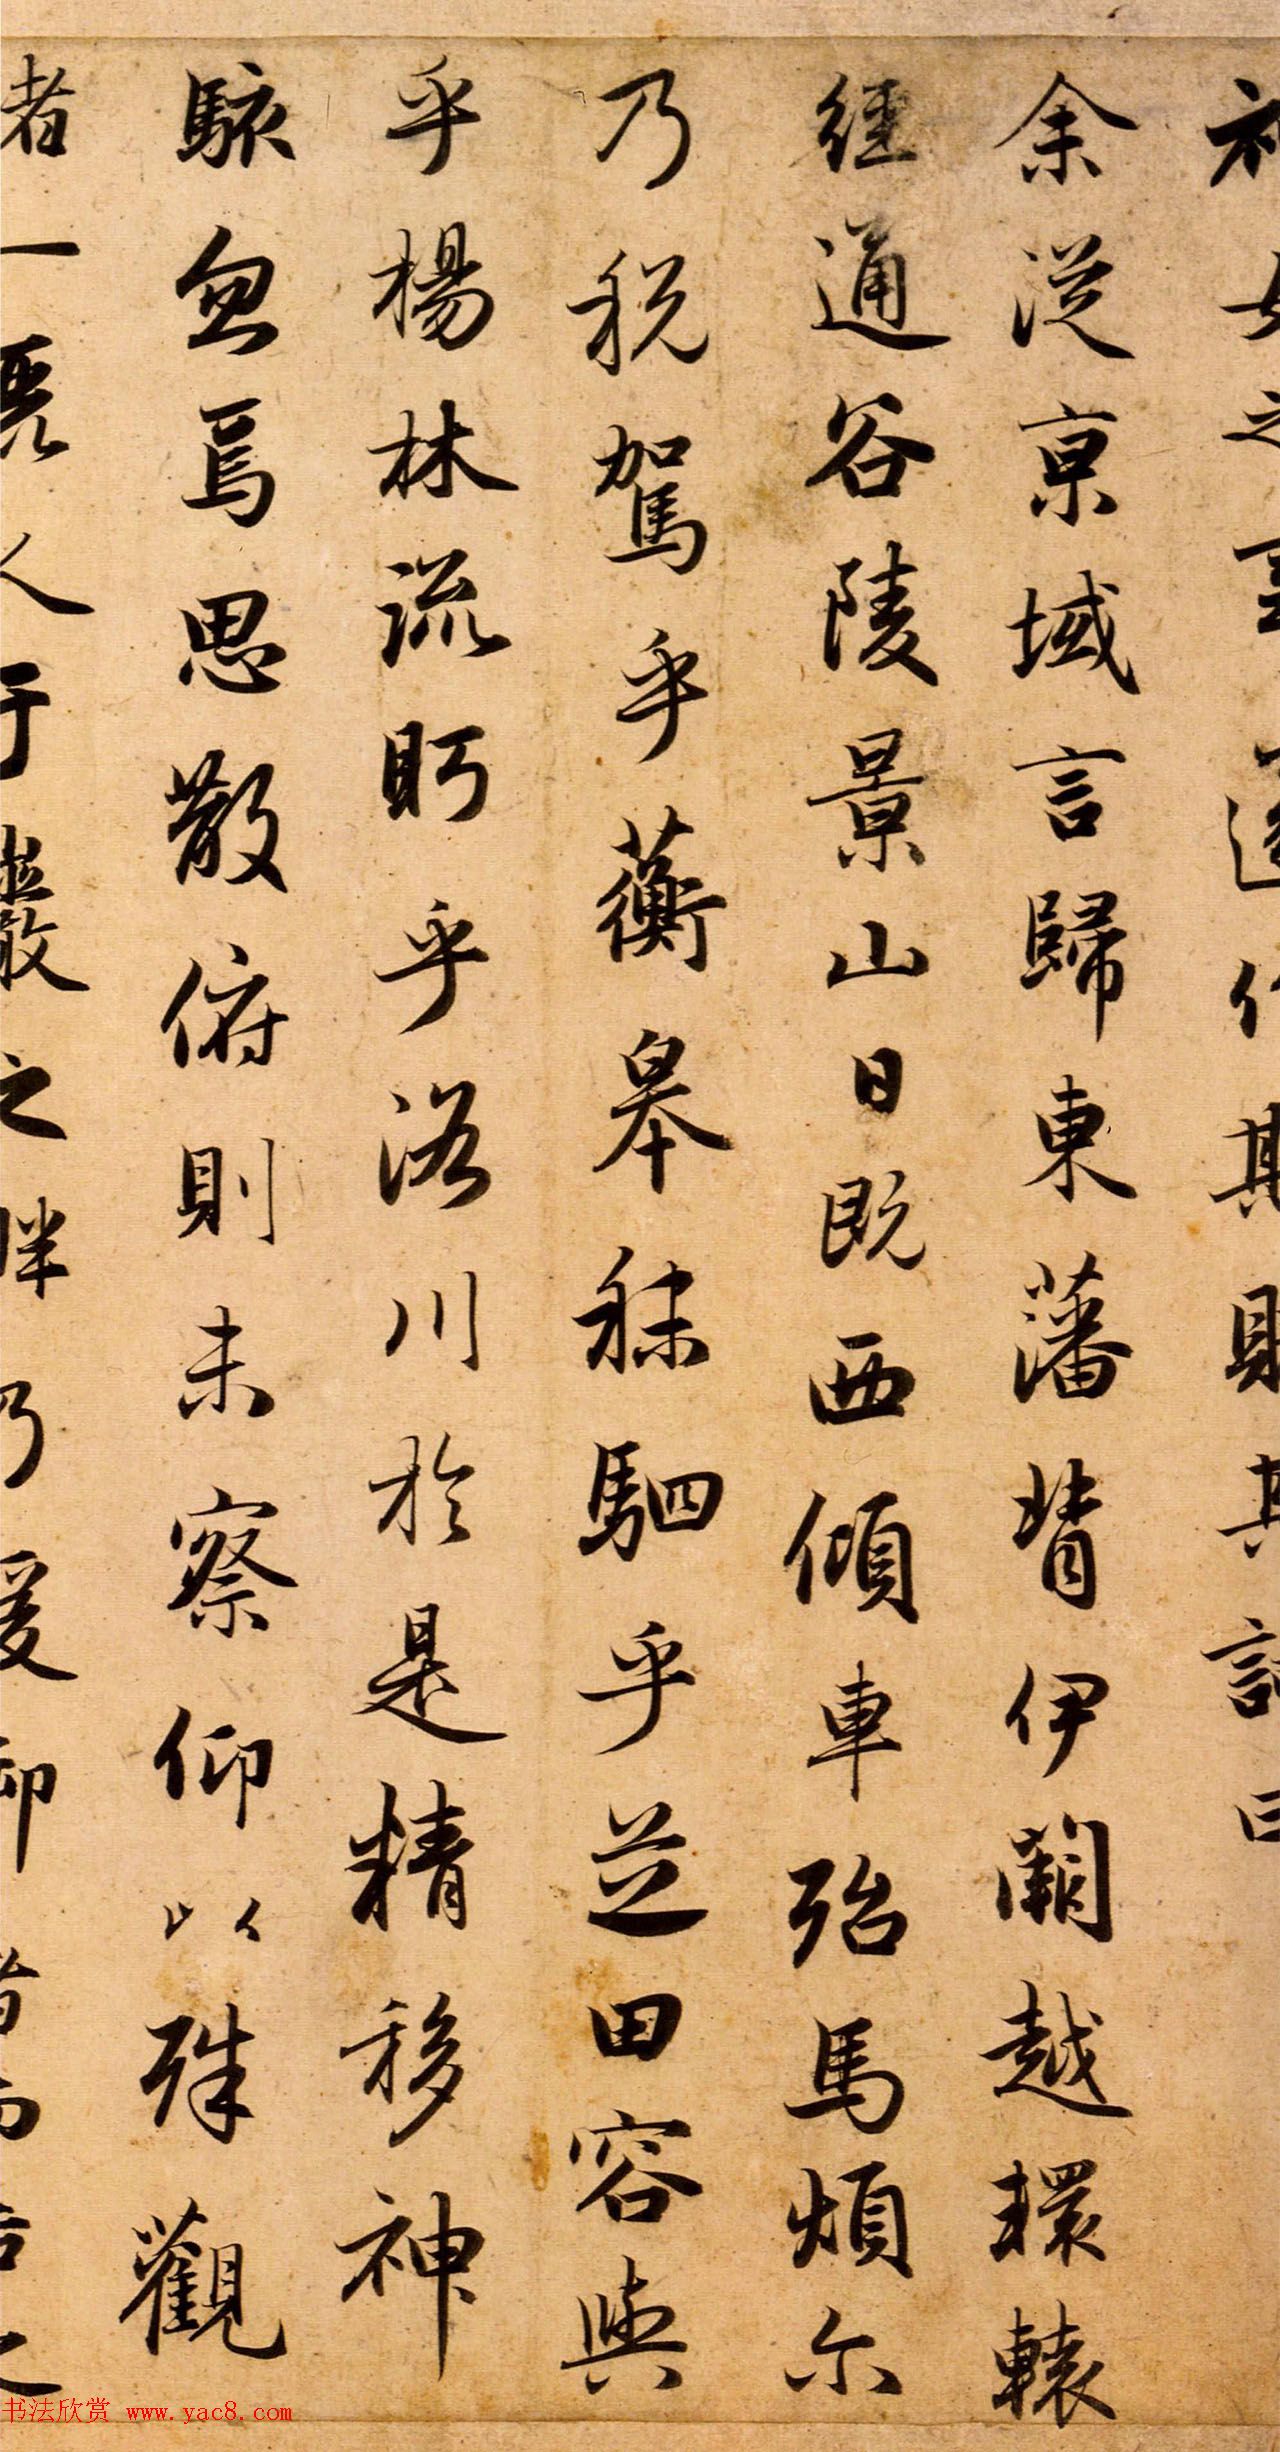 神女之事遂作斯賦其詞曰
余從京域言歸東藩背伊闕越轘轅
經通谷陵景山日既西傾車殆馬煩尔
乃税駕乎蘅皋秣駟乎芝田容與
乎楊林流眄乎洛川於是精移神
駭忽焉思散俯則未察仰以殊觀
者一麗人于巖之畔乃援御者而告之
书法欣赏 www.yac8.com